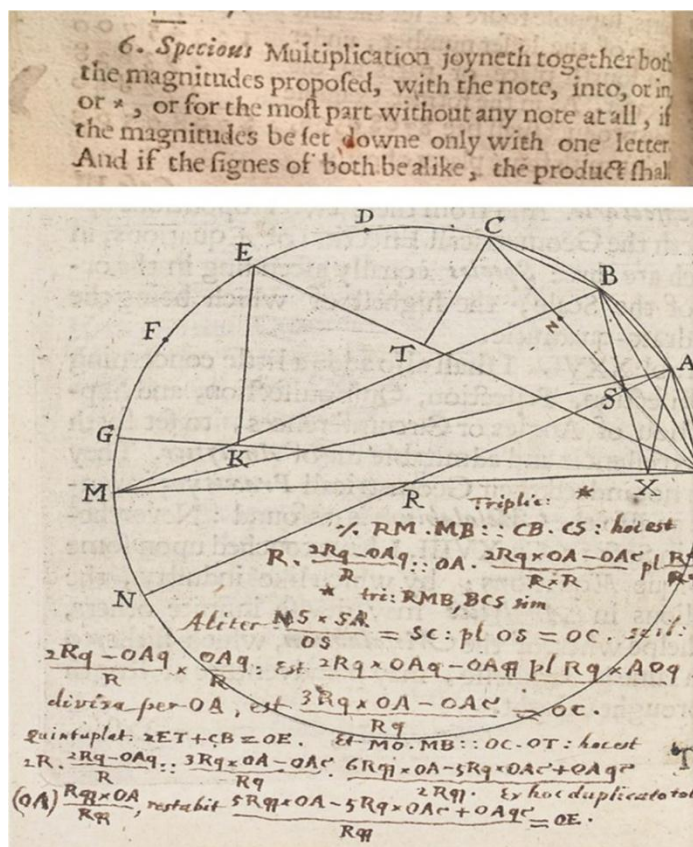 6. Specious Multiplication joyneth together both
the magnitudes proposed, with the note, into, or in,
or ×, or for the most part without any note at all, if
the magnitudes be set downe only with one letter
And if the signes of both be alike, the product shal
D
C
E
B
F
N
T
A
S
G
K
X
M
R
Triplic: *
% RM. MB :: CB. CS : hoc est
R. (2Rq-OAq)/R :: OA. (2Rq×OA-OAc)/(R×R) pl
* tri: RMB, BCS sim
N
Aliter (NS×SA)/OS = SC: pl OS = OC. scil:
(2Rq-OAq)/R × OAq/R : Est 2Rq×OAq-OAqq pl Rq×AOq
divisa per OA, est (3Rq×OA-OAc)/Rq = OC.
Quintuplat: 2ET+CB=OE. Et MO. MB :: OC. OT : hoc est
2R. (2Rq-OAq)/R :: (3Rq×OA-OAc)/Rq. (6Rqq×OA-5Rq×OAc+OAqc)/2Rqq. Ex hoc duplicato tol
T
(OA) (Rqq×OA)/Rqq, restabit (5Rqq×OA-5Rq×OAc+OAqc)/Rqq = OE.